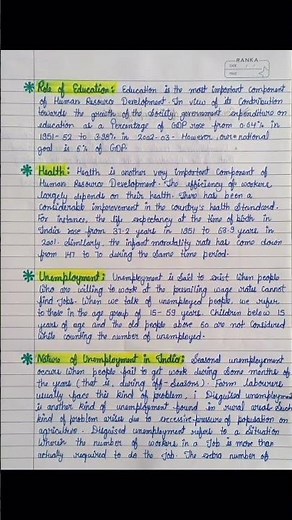 RANKA
DATE
PAGE
* Role of Education: Education is the most important component
of Human Resource Development. In view of its contribution
towards the growth of the Society; government expenditure on
education as a Percentage of GDP rose from 0.64% in
1951-52 to 3.98% in 2002-03. However, our national
goal is 6% of GDP.
* Health: Health is another very important component of
Human Resource Development. The efficiency of workers
largely depends on their health. There has been a
considerable improvement in the country's health standard.
For instance, the life expectancy at the time of birth in
India rose from 37.2 years in 1951 to 63.9 years in
2001. Similarly, the infant mortality rate has come down
from 147 to 70 during the same time period.
* Unemployment: Unemployment is said to exist when people
who are willing to work at the prevailing wage rates cannot
find jobs. When we talk of unemployed people, we refer
to those in the age group of 15-59 years. Children below 15
years of age and the old people above 60 are not considered
while counting the number of unemployed.
* Nature of Unemployment in India: Seasonal unemployement
occurs when people fail to get work during some months of
the years (that is, during off-seasons). Farm labourers
usually face this kind of problem. Disguised unemployment
is another kind of unemployment found in rural areas. Such
kind of problem arises due to excessive pressure of population on
agriculture. Disguised unemployment refers to a situation
wherein the number of workers in a job is more than
actually required to do the job. The extra number of